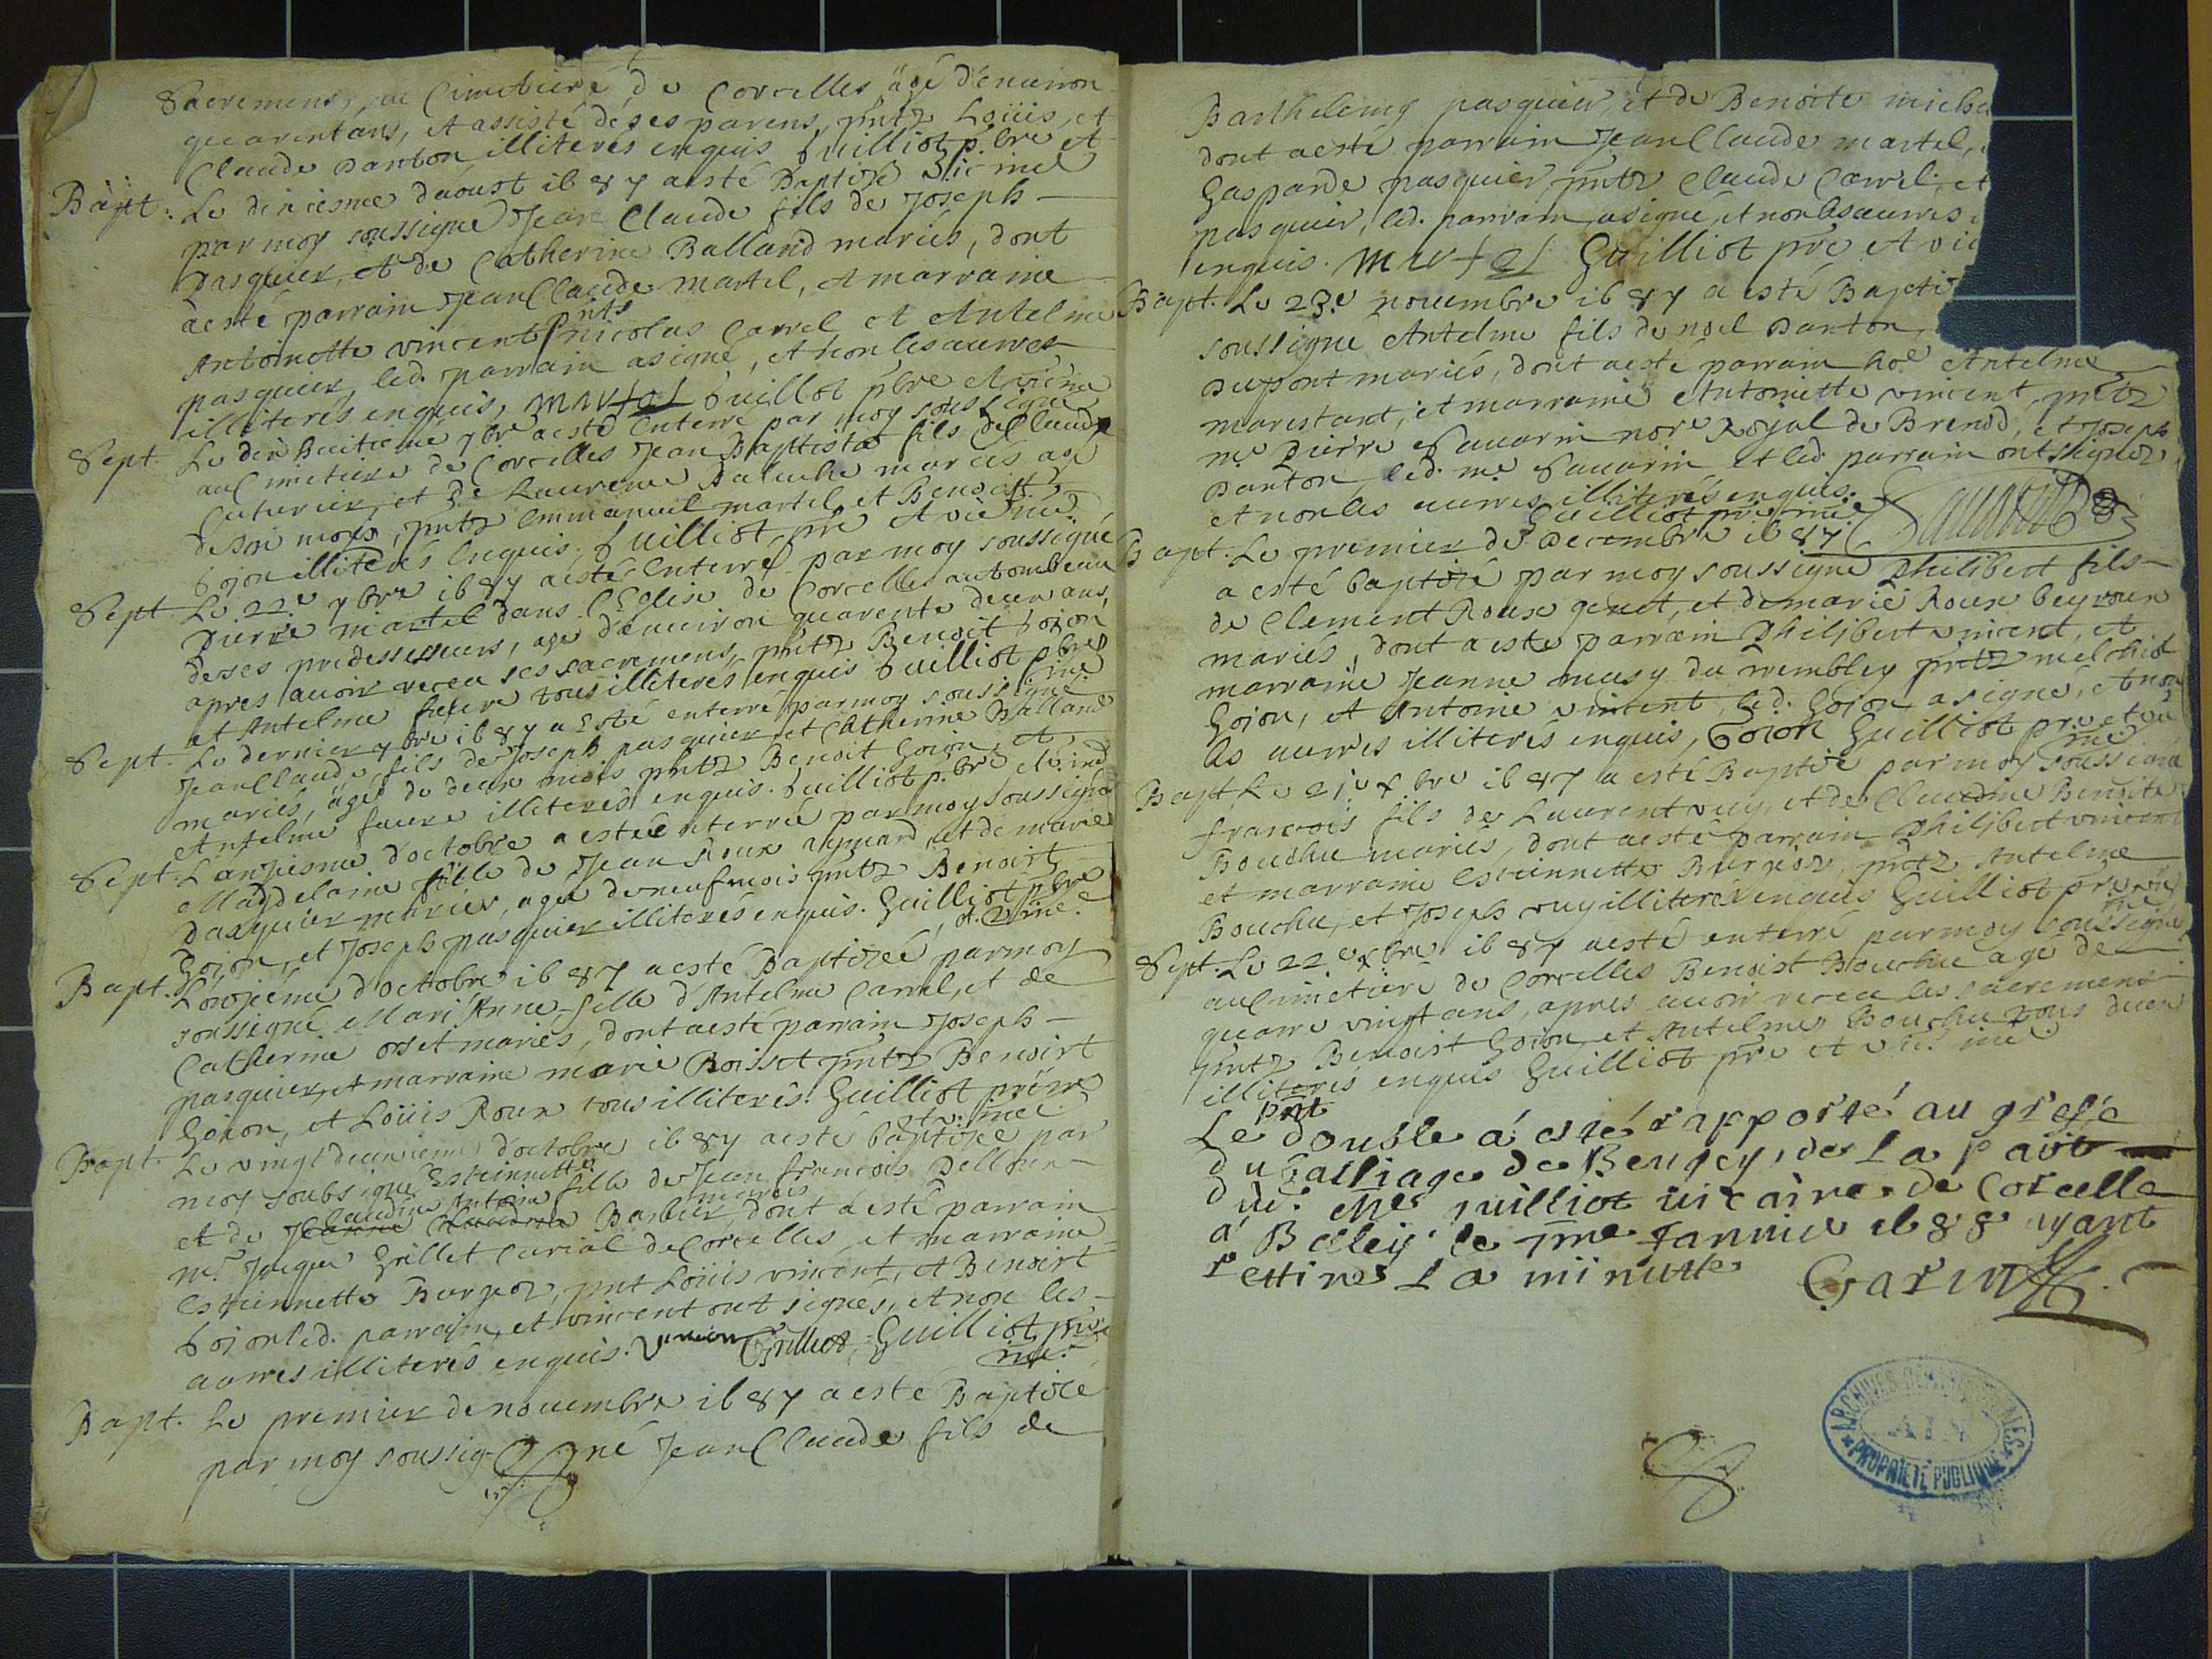 Sacremens, au Cimetiere de Corcelles âgé d'enuiron
quarent'ans, et assisté de ses parens, pntz Loüis, et
Claude Danton illiterés enquis Guilliot p.bre et
Bapt. Le dixiesme d'aoust i687 a esté Baptizé vic. iné
par moy soussigné Jean Claude fils de Joseph
pasquier, et de Catherine Balland mariés, dont
a esté parrain Jean Claude martel, et marraine
Antoinette vincent pnts nicolas Carrel et Antelme
pasquier, led. parrain a signé, et non les autres
illiterés enquis, martel Guilliot pbre et vic. iné
Sept. Le dix huitiemé 7bre a esté enterré par moy soussigné
au Cimetiere de Corcelles Jean Baptiste fils de Claude
Cuturier, et de Laurence Baluche mariés agé
de six mois, pntz Emmanuel martel et Benoist
Gojon illiterés enquis. Guilliot pre et vic. iné.
Sept. Le 22e 7bre i687 a esté enterré par moy soussigné
Pierre martel dans l'Eglise de Corcelles au tombeau
de ses predessesseurs, agé d'enuiron quarente deux ans,
apres auoir receu ses sacremens, pntz Benoit Gojon
et Antelme faure tous illiterés enquis Guilliot pbre
iné
Sept. Le dernier 7bre i687 a esté enterré par moy soussigné
Jean Claude, fils de Joseph pasquier et Catherine Balland
mariés, âgé de deux mois pntz Benoit Gojon, et
Antelme faure illiterés enquis. Guilliot p.bre et v. iné
Sept. L'onziesme d'octobre a esté enterrée par moy soussigné
Magdelaine fille de Jean Roux aymard et de marie
Pasquier mariés, agée de neuf mois pntz Benoist
Gojon, et Joseph pasquier illiterés enquis. Guilliot pbre
et v. iné.
Bapt. L'onzjéme d'octobre i687 a esté Baptizée par moy
soussigné Mari'Anne fille d'Antelme Carrel, et de
Catherine orset mariés, dont a esté parrain Joseph
pasquier, et marraine marie Boisset pntz Benoist
Gojon, et Loüis Roux tous illiterés. Guilliot prëtre
et v. iné
Bapt. Le vingt deuxieme d'octobre i687 a esté baptizée par
moy soubsigné Estiennette fille de Jean françois Delloux
et de Claudine Antoine Barbier mariés, dont a esté parrain
mr. Jaque Grillet curial de Corcelles, et marraine
Estiennette Burjoz, pnt Loüis vincent, et Benoist
Gojon led. parrain, et vincent ont signés, et non les
autres illiterés enquis. Vincent Grillet, Guilliot pre
iné.
Bapt. Le premier de nouembre i687 a esté Baptizé
par moy soussigné Jean Claude fils de
Barthelemy pasquier, et de Benoite
dont a esté parrain Jean Claude martel,
Gasparde pasquier, pntz Claude Carrel, et
pasquier, led. parrain a signé, et non les autres
enquis. martel Guilliot pre et vic
Bapt. Le 23.e nouembre i687 a esté Bapti
soussigné Antelme fils de noel Danton,
Dupont mariés, dont a esté parrain ho.e Antelme
marestant, et marraine Antoinette vincent, pntz
me. Pierre Sauarin nore Royal de Brenod, et Joseph
Danton led. me. Sauarin et led. parrain ont signéz
et non les autres illiterés enquis.
Guilliot pre iné Sauarin
Bapt. Le premier de Decembre i687
a esté baptizé par moy soussigné Philibert fils
de Clement Roux genet, et de marie Roux beyroux
mariés, dont a esté parrain Philibert vincent, et
marraine Jeanne musy du trembley pntz melchiot
Gojon, et Antoine vincent, led. Gojon a signé, et non
les autres illiterés enquis, Goion Guilliot pre et vi
iné
Bapt. Le 21e xbre i687 a esté Baptizé par moy soussigné
francois fils de Laurent vuy, et de Claudine Benoite
Bouchu mariés, dont a esté parrain Philibert vincent
et marraine Estiennette Burjoz, pntz Antelme
Bouchu, et Joseph vuy illiterés enquis Guilliot pre et v
iné
Sept. Le 22e xbre i687 a esté enterré par moy soussigné
au Cimetiere de Corcelles Benoist Bouchu agé de
quatre vingt ans, apres auoir receu les sacremens
pntz Benoist Gojon, et Antelme Bouchu tous deux
illiterés enquis Guilliot pre et vic. iné
Le pnt double á esté rapporté au grefe
du balliage de Beugey, de la part
du. Mre guilliot uicaire de Corcelle
á Belley le 7me Januier i688 ayant
rettiré la minutte Garin
ARCHIVES DÉPARTEMENTALES
AIN
PROPRIÉTÉ PUBLIQUE